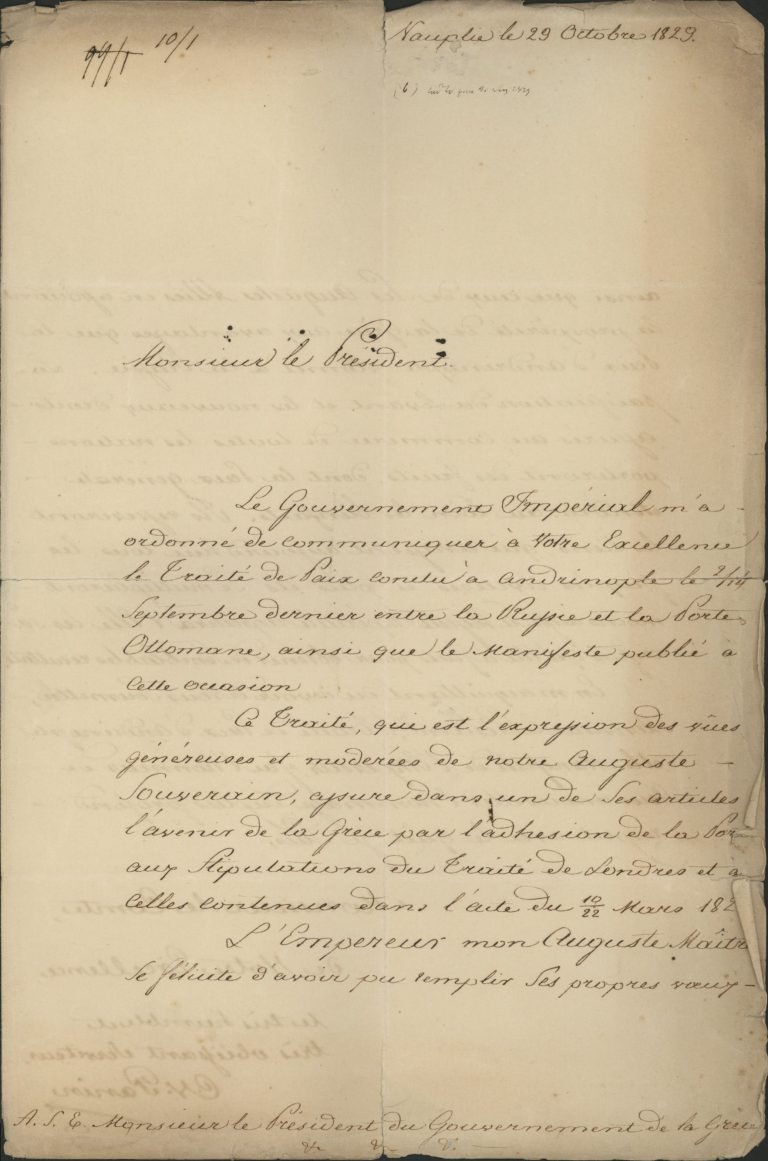 99/1 10/1
Nauplie le 29 Octobre 1829.
(6)
Monsieur le Président.
Le Gouvernement Impérial m'a -
ordonné de communiquer à Votre Excellence
le Traité de Paix conclu à Andrinople le 2/14
Septembre dernier entre la Russie et la Porte
Ottomane, ainsi que le Manifeste publié à
cette occasion
Ce Traité, qui est l'expression des vües
généreuses et moderées de notre Auguste -
Souverain, assure dans un de Ses articles
l'avenir de la Grèce par l'adhesion de la Por
aux Stipulations du Traité de Londres et à
celles contenues dans l'acte du 10/22 Mars 182
L'Empereur mon Auguste Maître
Se félicite d'avoir pu remplir Ses propres vœux -
A. S. E. Monsieur le Président du Gouvernement de la Grèce
&. &. &.